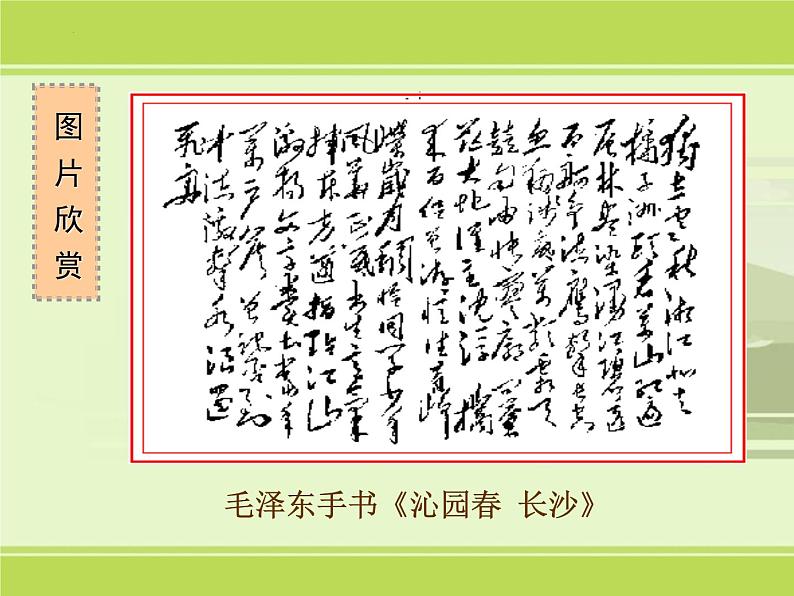 图片欣赏
獨立寒秋湘江北去
橘子洲頭看萬山紅遍
层林尽染漫江碧透
百舸争流鷹擊長空
魚翔浅底萬類霜天
競自由怅寥廓问蒼
茫大地谁主沈浮携
来百侣曾游忆往昔峥
嵘岁月稠恰同学少年
風華正茂书生意氣
挥斥方遒指點江山
激扬文字糞土当年
萬户侯曾記否到
中流擊水浪遏
飛舟
毛泽东手书《沁园春 长沙》